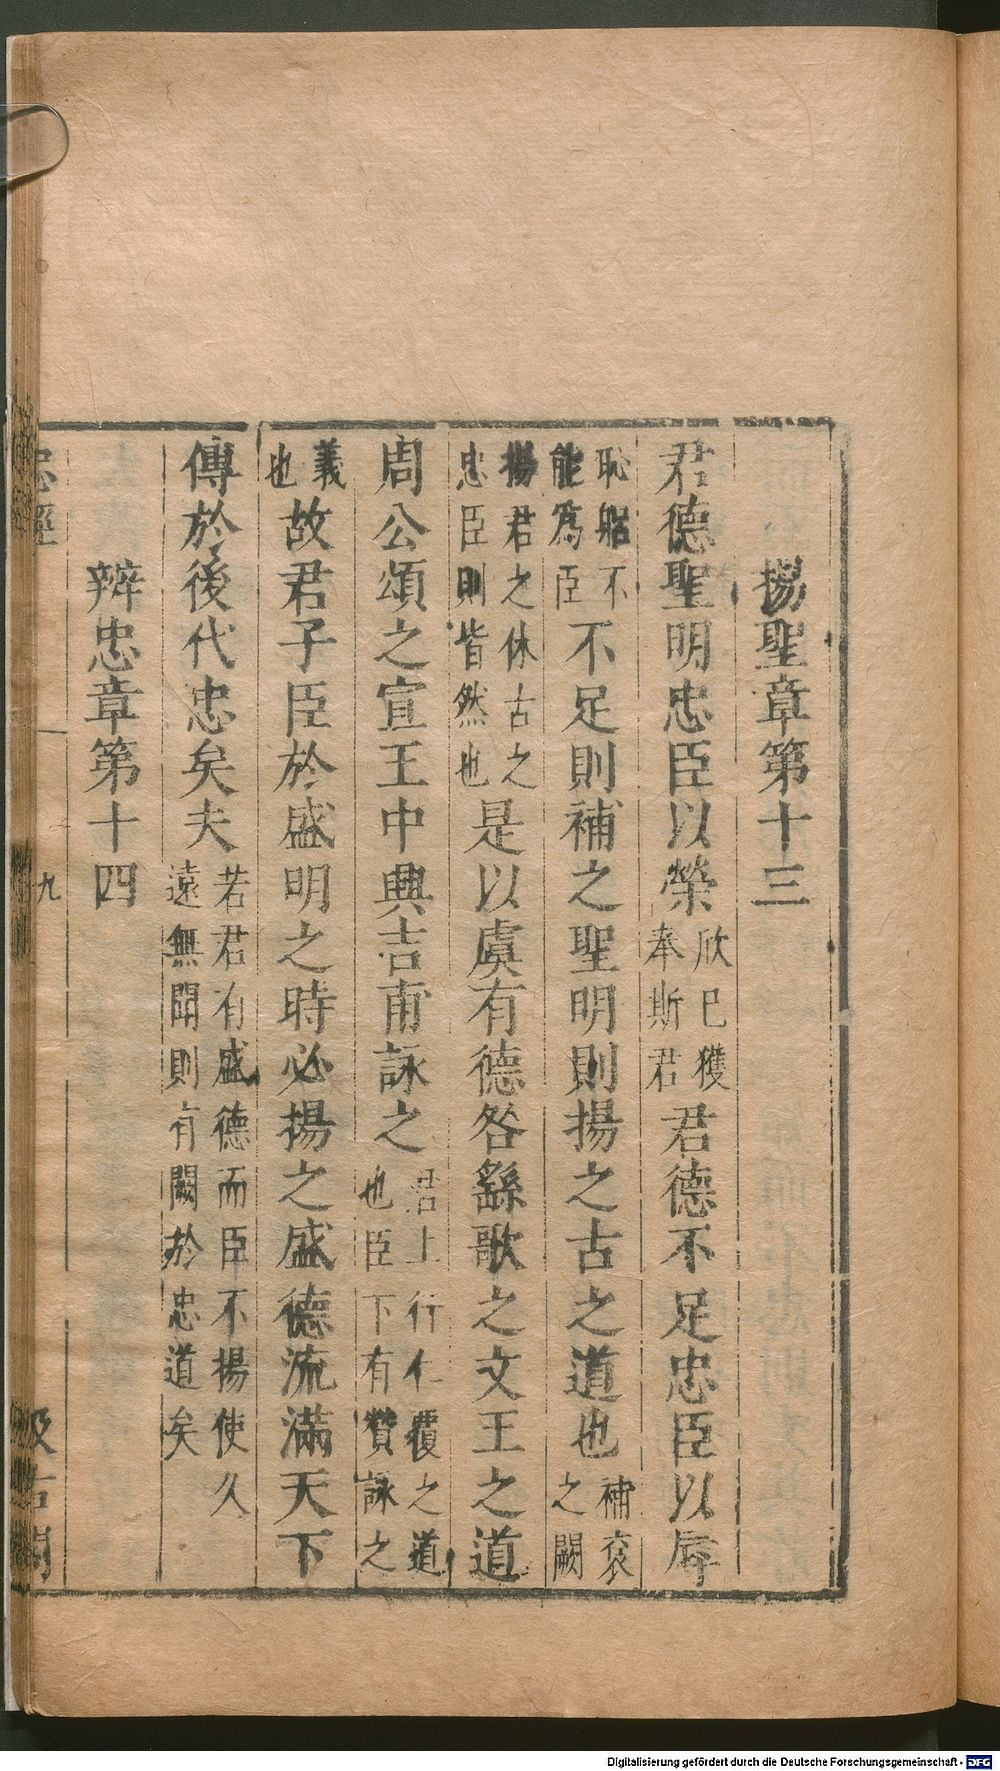 揚聖章第十三
君德聖明忠臣以榮欣巳獲奉斯君君德不足忠臣以辱
恥躬不能爲臣不足則補之聖明則揚之古之道也補袞之闕
揚君之休古之忠臣則皆然也是以虞有德咎繇歌之文王之道
周公頌之宣王中興吉甫詠之君上行仁覆之道也臣下有贊詠之
義也故君子臣於盛明之時必揚之盛德流滿天下
傳於後代忠矣夫若君有盛德而臣不揚使久遠無聞則有闕於忠道矣
辨忠章第十四
忠經 九 汲古閣
Digitalisierung gefördert durch die Deutsche Forschungsgemeinschaft - DFG